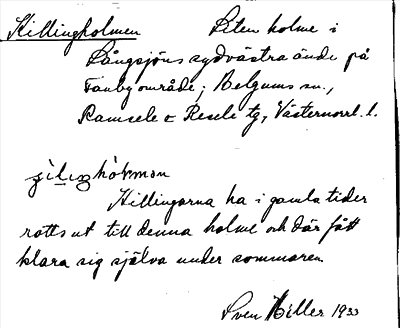 Killingholmen Liten holme i
Långsjöns sydvästra ände på
Tanbyområde; Helgums sn.,
Ramsele o Resele tg, Västernorrl. l.
hólmən
Killingarna ha i gamla tider
rotts ut till denna holme och där fått
klara sig själva under sommaren
Sven Hiller 1933